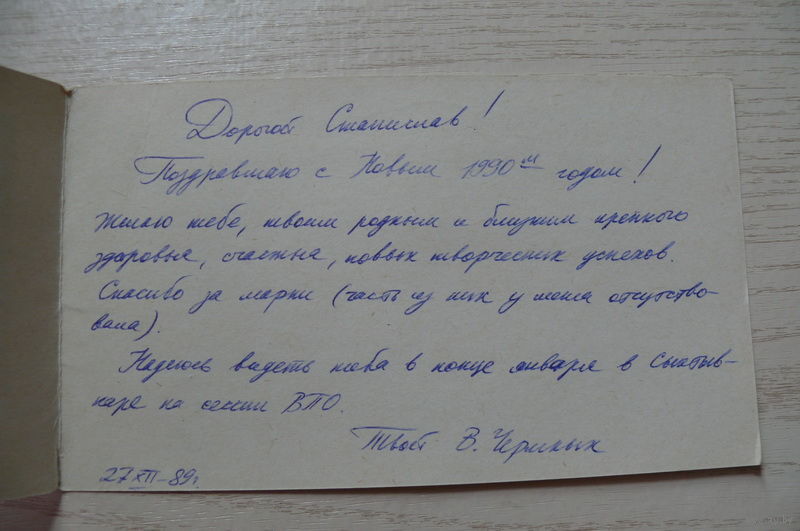 Дорогой Станислав!
Поздравляю с Новым 1990ым годом!
Желаю тебе, твоим родным и близким крепкого
здоровья, счастья, новых творческих успехов.
Спасибо за марки (часть из них у меня отсутство-
вала).
Надеюсь видеть тебя в конце января в Сыктыв-
каре на сессии ВПО.
Твой В.
27 XII-89г.